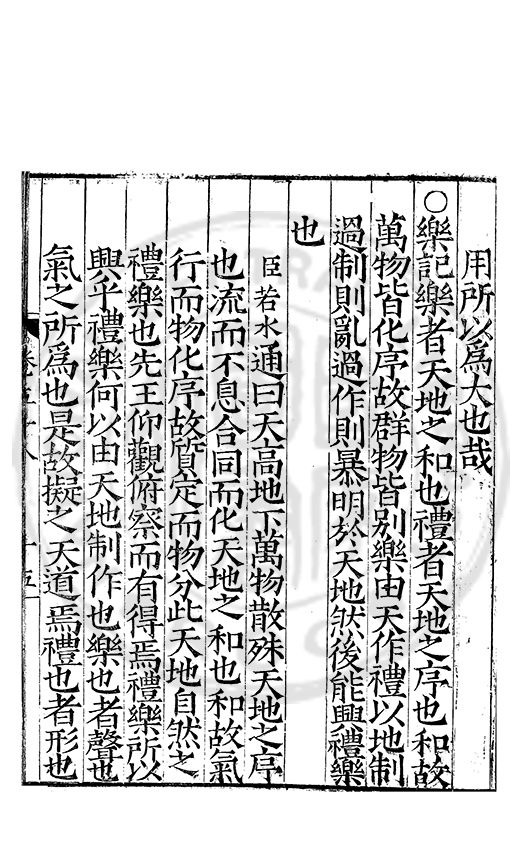 用所以爲大也哉
○樂記樂者天地之和也禮者天地之序也和故
萬物皆化序故群物皆别樂由天作禮以地制
過制則亂過作則暴明於天地然後能興禮樂
也
臣若水通曰天高地下萬物散殊天地之序
也流而不息合同而化天地之和也和故氣
行而物化序故質定而物分此天地自然之
禮樂也先王仰觀俯察而有得焉禮樂所以
興乎禮樂何以由天地制作也樂也者聲也
氣之所爲也是故擬之天道焉禮也者形也
卷五十八 十五